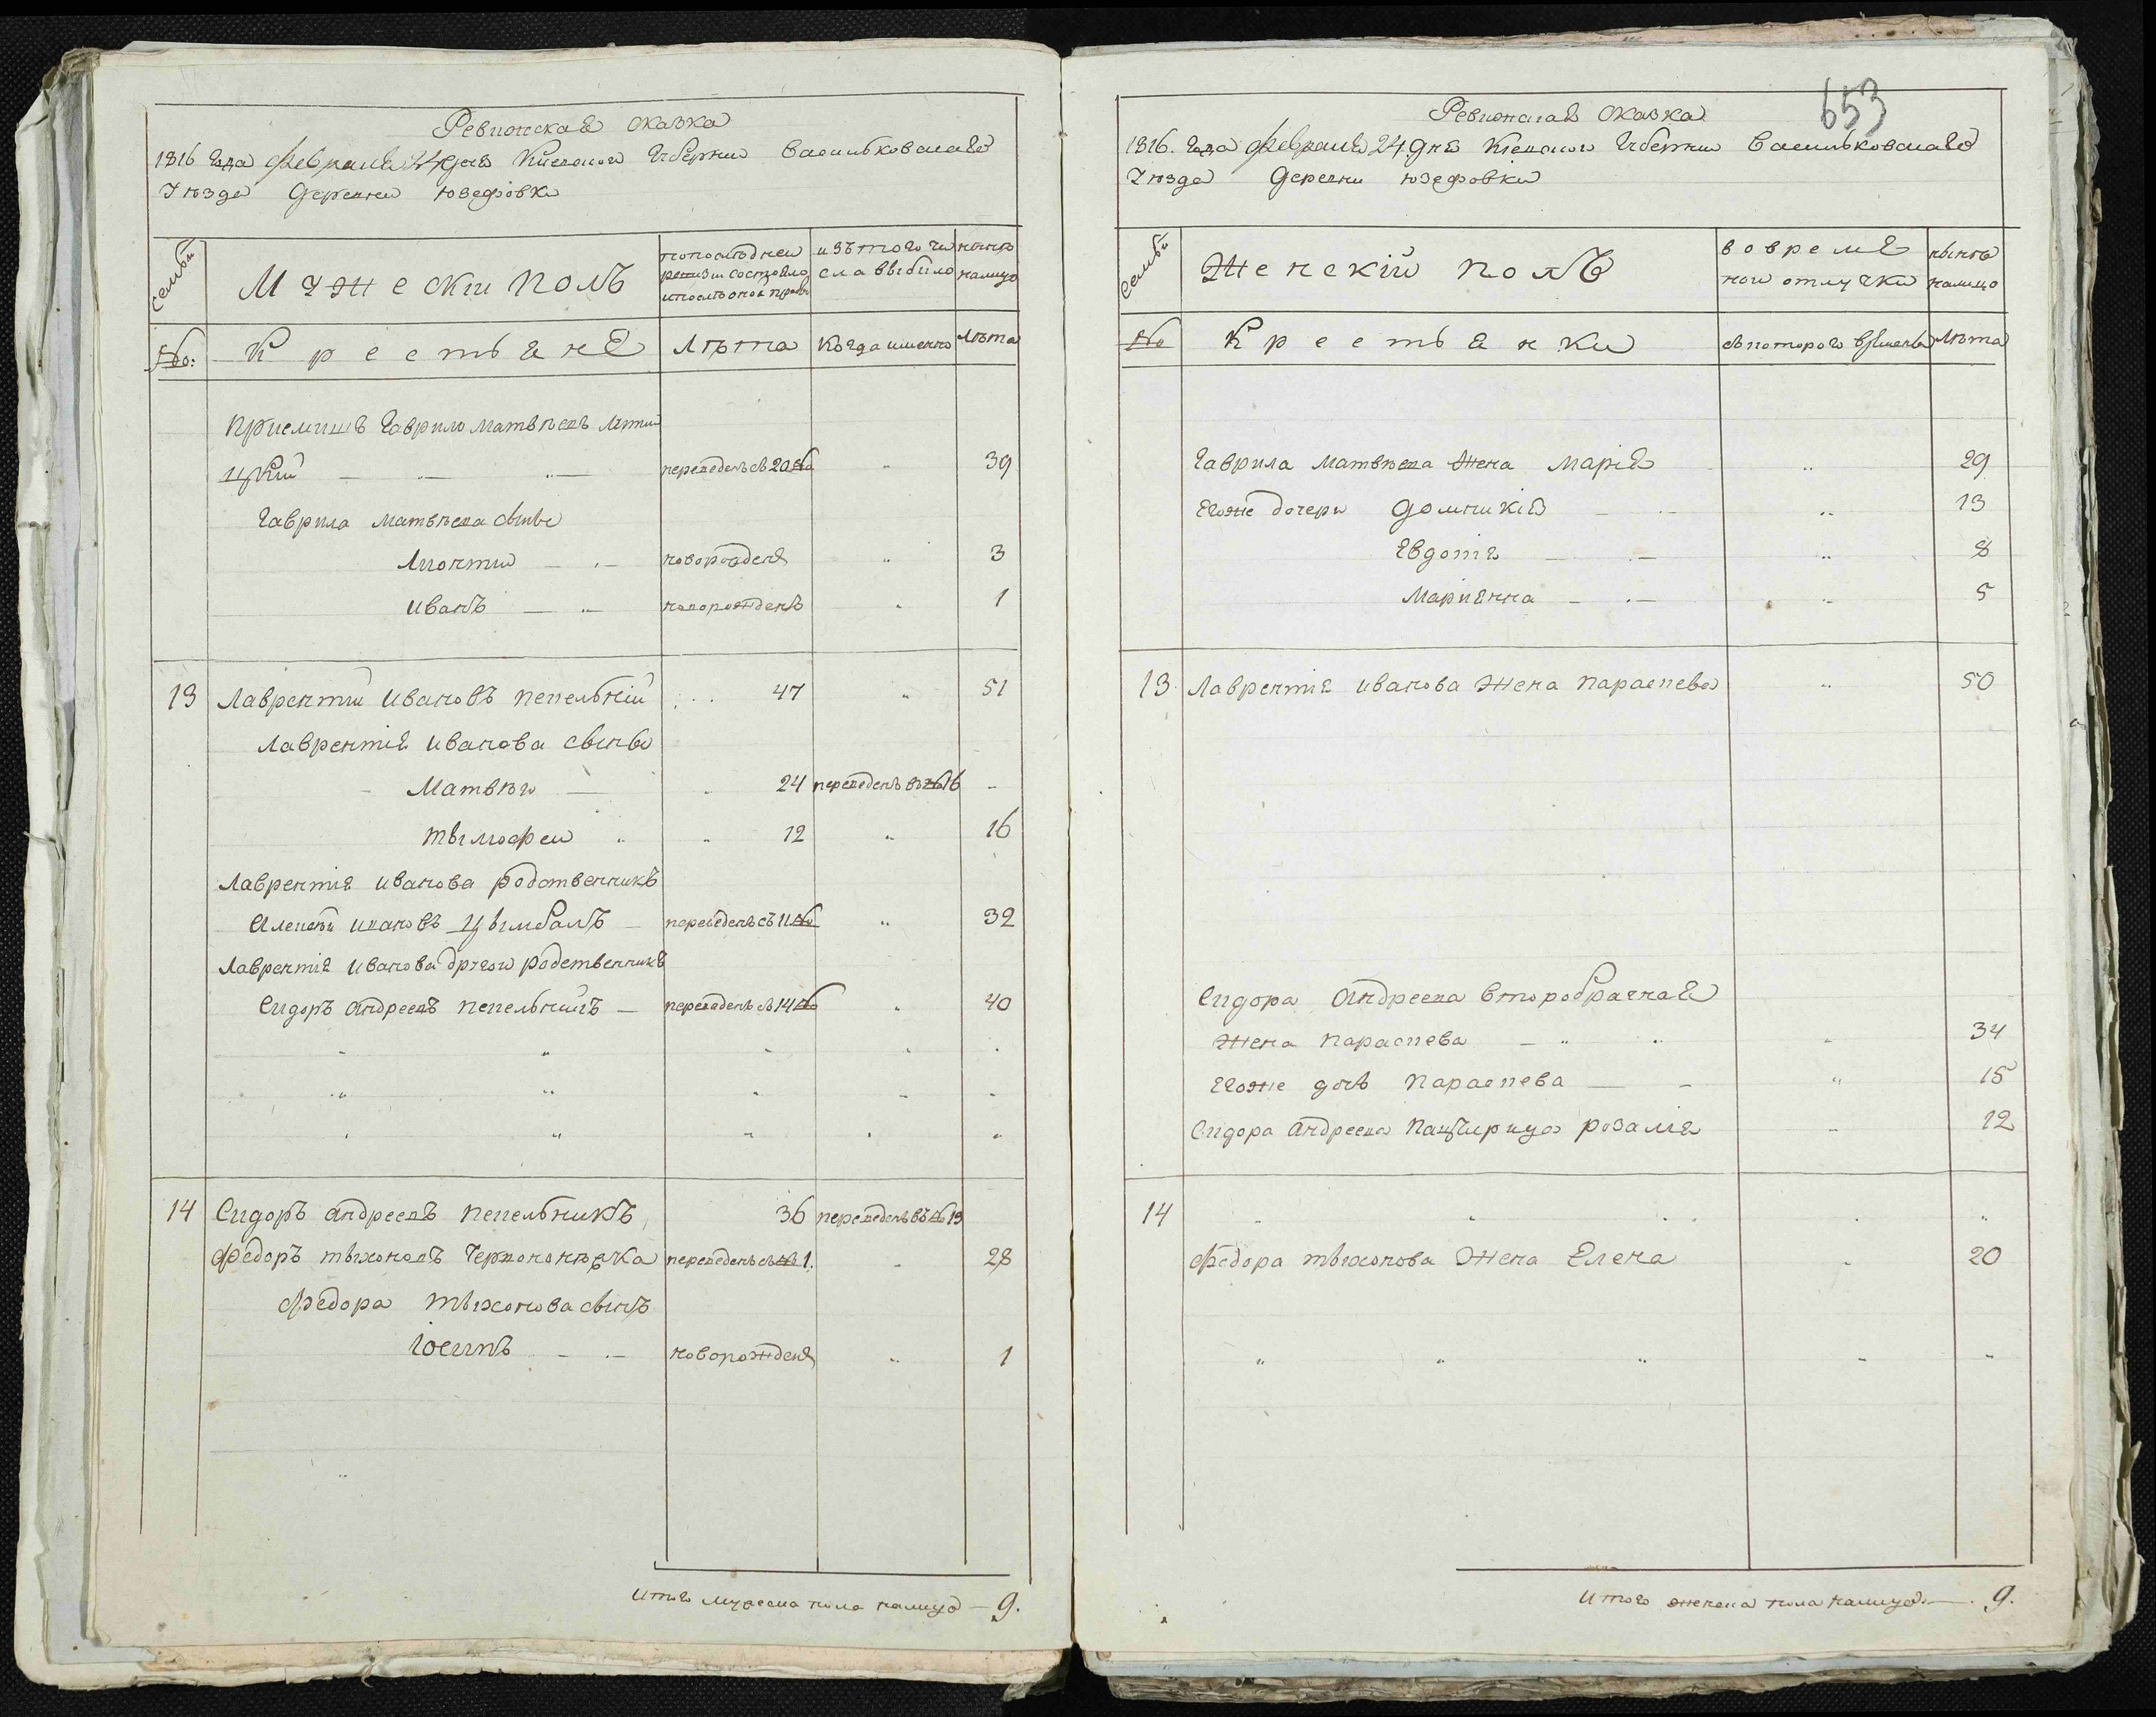 Ревизская сказка
1816 года февраля 24 дня Киевской Губернии Васильковскаго
Уѣзда Деревни Юзефовки
Семьи
Мужескій полъ
попослѣдней ревизіи состояло и после оной прибыло
изътого числа выбыло
нынѣ налицо
№:
Крестьяне
Лѣта
Когда именно
Лѣта
Приемишъ Гаврило Матвѣевъ
переведенъ съ 20 № " 39
Гаврила Матвѣева сыны
новорожденъ " 3
Иванъ — " новорожденъ " 1
13 Лаврентій Ивановъ Пепельній 47 " 51
Лаврентія Иванова сыны
Матвѣй — 24 переведенъ въ № 16 -
Тымофей " 12 " 16
Лаврентія Иванова родственникъ
Алексѣй Ивановъ Цымбалъ — переведенъ съ 11 № " 32
Лаврентія Иванова другой родственникъ
Сидоръ Андреевъ — переведенъ съ 14 № " 40
14 Сидоръ Андреевъ Пепельникъ 36 переведенъ въ № 13
Федоръ Тыхоновъ переведенъ съ № 1. " 28
Федора Тыхонова сынъ
Іосипъ — новорожденъ " 1
Итого мужеска пола налицо — 9.
653
Ревизская сказка
1816. года февраля 24 дня Кіевской Губернии Васильковскаго
Уѣзда Деревни Юзефовки
Семьи
Женскій полъ
вовременной отлучки
нынѣ налицо
№
Крестьянки
съ котораго времени
Лѣта
Гаврила Матвѣева жена Марія " 29
Егоже дочери Домникія — " 13
Евдотія — " 8
Маріянна — " 5
13 Лаврентія Иванова жена Параспева " 50
Сидора Андреева второбрачная
жена Параспева — " 34
Егоже дочь Параспева — " 15
Сидора Андреева Падчирица Розалія " 12
14 " " "
Федора Тыхонова жена Елена " 20
Итого женска пола налицо. — 9.